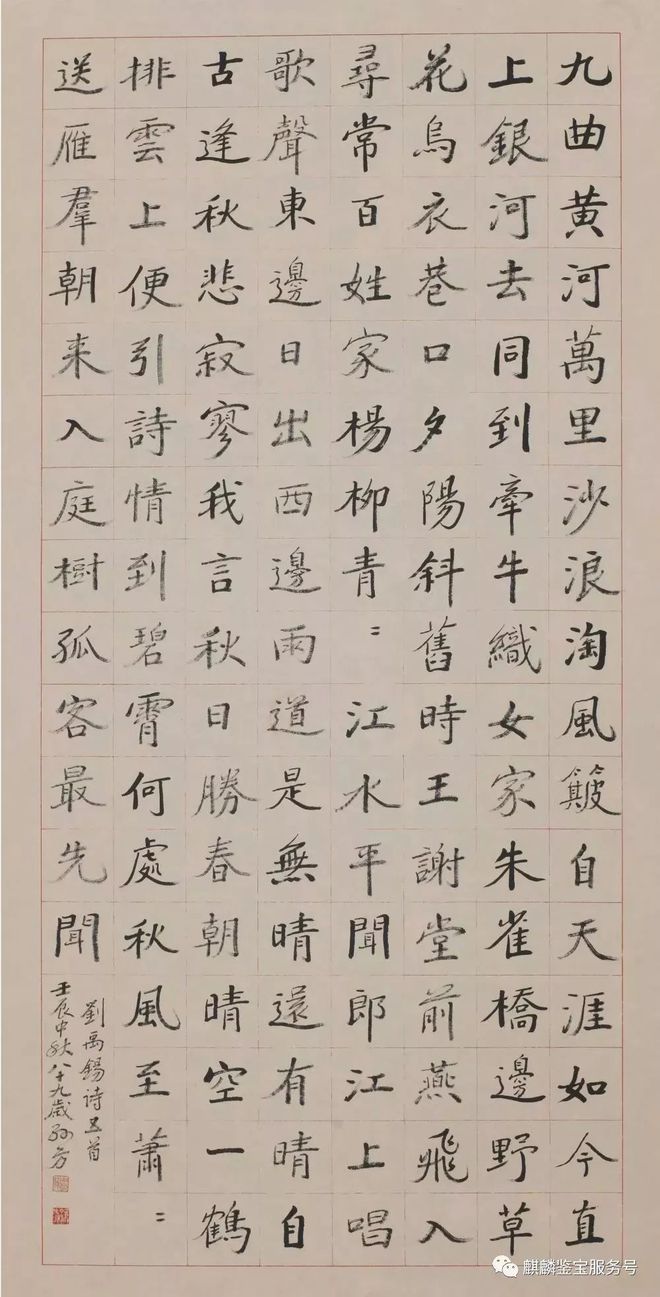 九曲黄河萬里沙浪淘風簸自天涯如今直
上銀河去同到牽牛織女家朱雀橋邊野草
花烏衣巷口夕陽斜舊時王謝堂前燕飛入
尋常百姓家楊柳青〻江水平聞郎江上唱
歌聲東邊日出西邊雨道是無晴還有晴自
古逢秋悲寂寥我言秋日勝春朝晴空一鶴
排雲上便引詩情到碧霄何處秋風至蕭〻
送雁羣朝来入庭樹孤客最先聞
劉禹錫诗五首
壬辰中秋八十九歲孙芳
麒麟鉴宝服务号